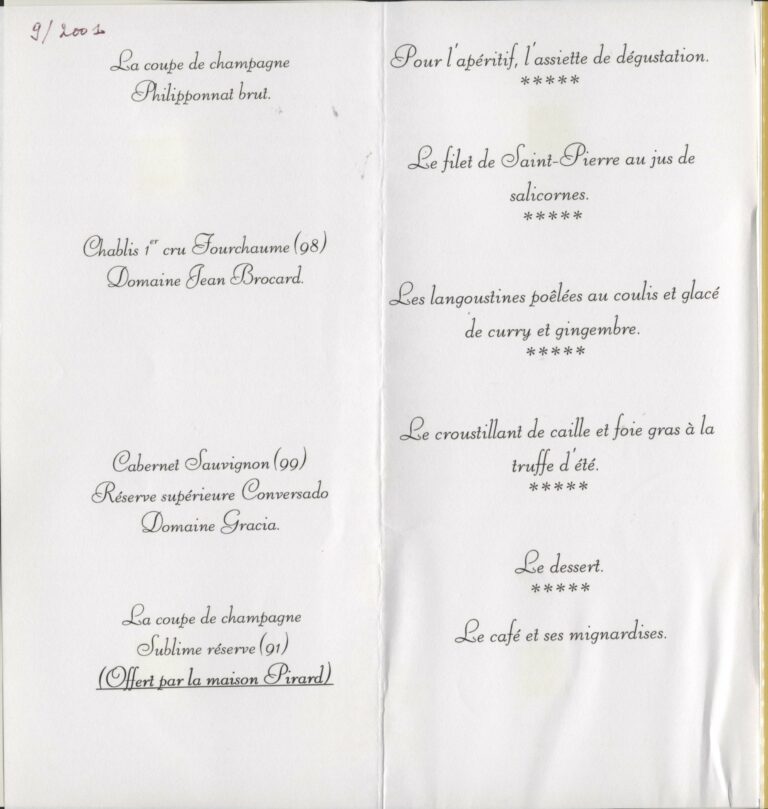 9/2001
La coupe de champagne
Philipponnat brut.
Chablis 1er cru Fourchaume (98)
Domaine Jean Brocard.
Cabernet Sauvignon (99)
Réserve supérieure Conversado
Domaine Gracia.
La coupe de champagne
Sublime réserve (91)
(Offert par la maison Pirard)
Pour l'apéritif, l'assiette de dégustation.
*****
Le filet de Saint-Pierre au jus de
salicornes.
*****
Les langoustines poêlées au coulis et glacé
de curry et gingembre.
*****
Le croustillant de caille et foie gras à la
truffe d'été.
*****
Le dessert.
*****
Le café et ses mignardises.